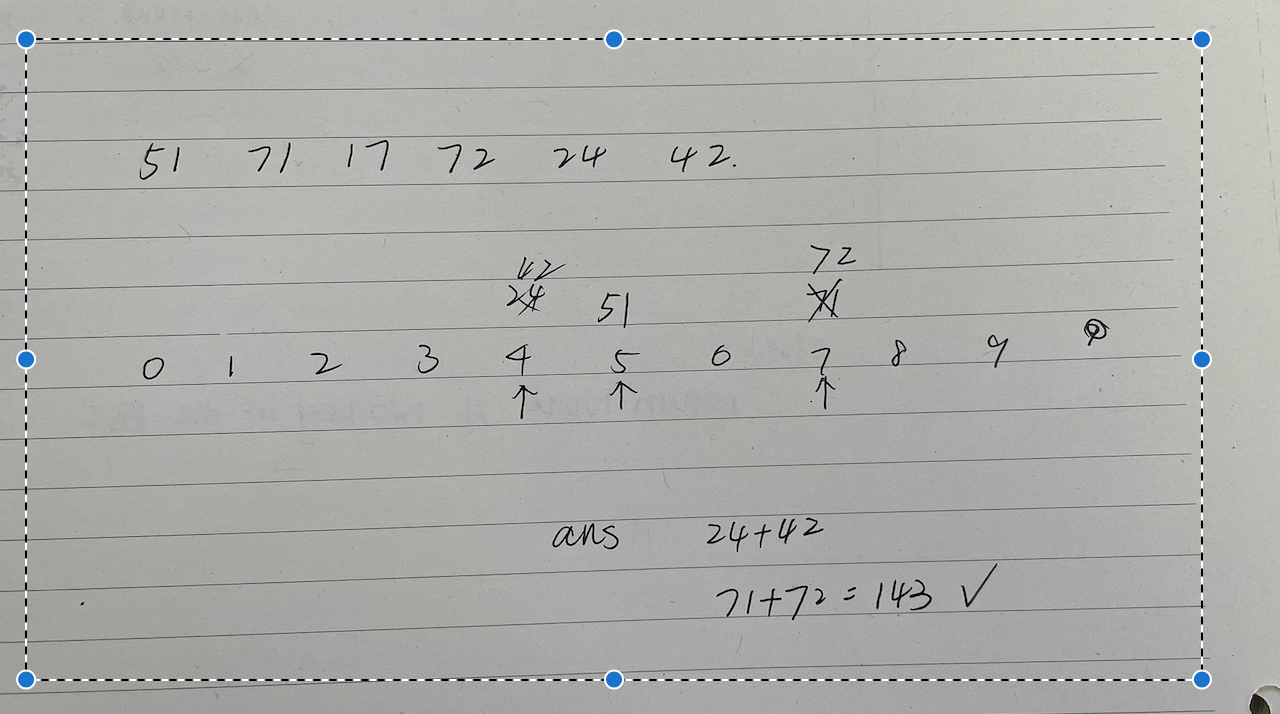 51 71 17 72 24 42.
42 72
24 51 71
0 1 2 3 4 5 6 7 8 9
↑ ↑ ↑
ans 24+42
71+72=143 ✓